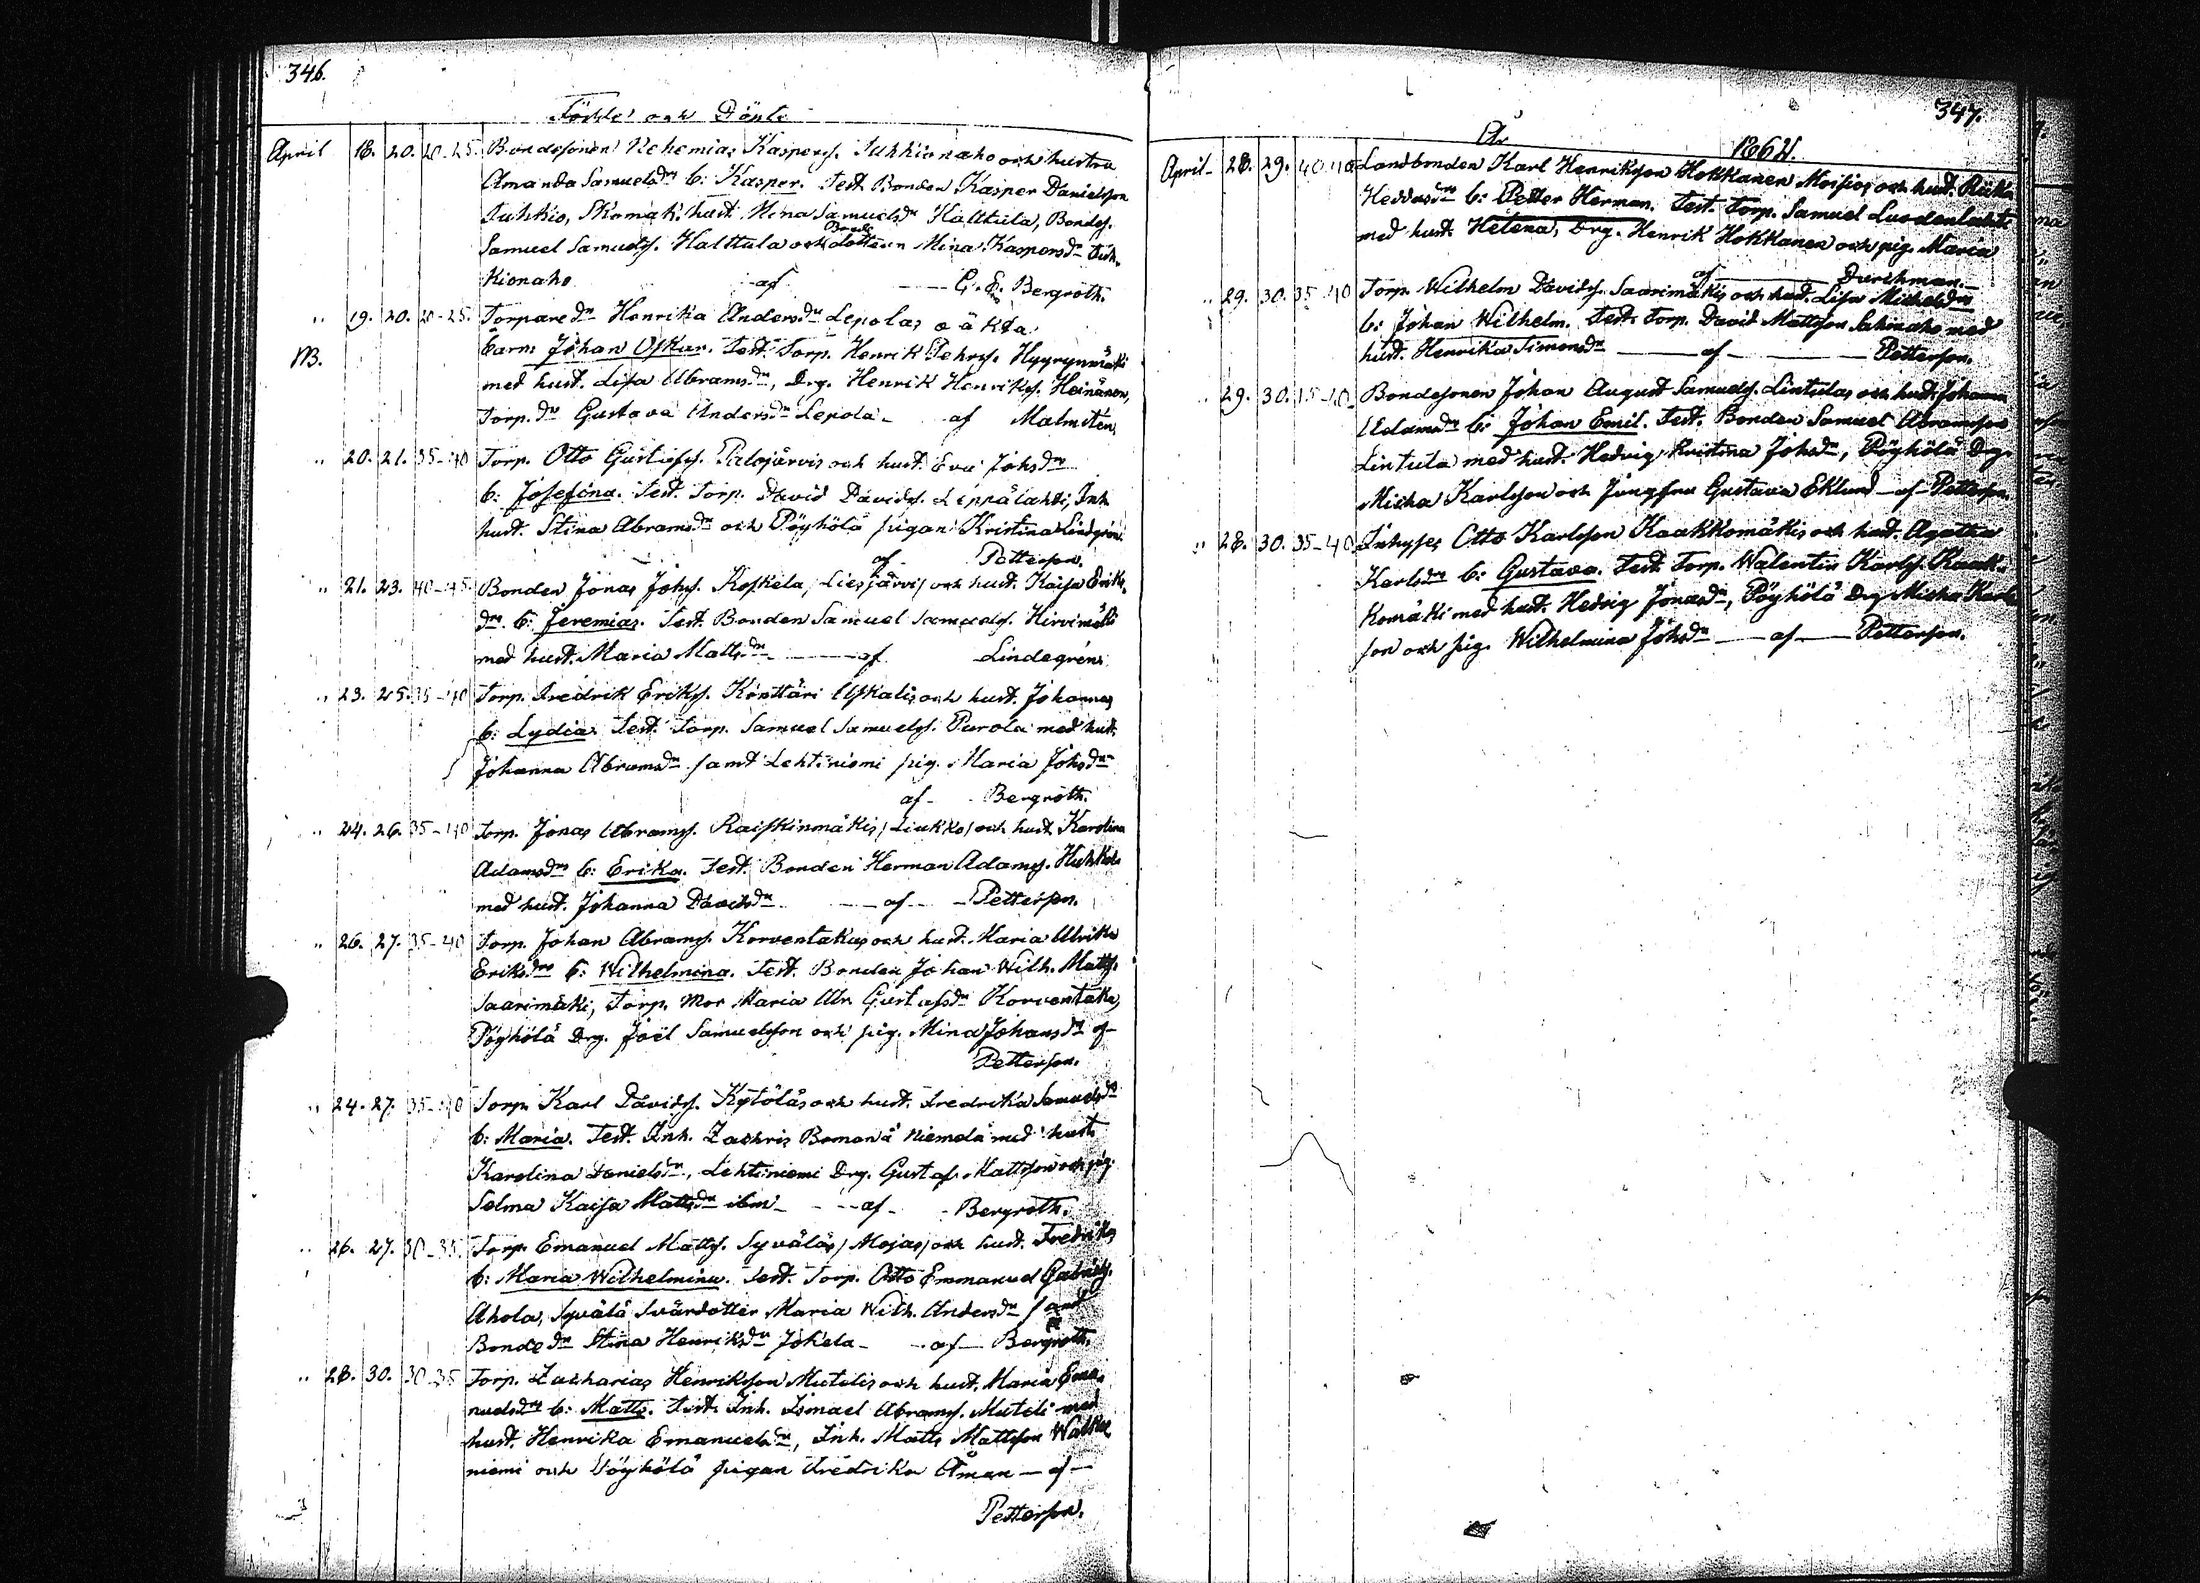 346.
Födde och Döpte
April 18. 20. 20-25. Bondesonen Nehemias Kaspers. Juhkionaho och hustru
Amanda Samuelsdr b: Kasper. Test. Bonden Kasper Danielsson
Juhkio, Skomak. hust. Mina Samuelsdr Halttula, Bondes.
Samuel Samuels. Halttula och Bonde dottern Mina Kaspersdr Juh-
kionaho af C. E. Bergroth.
" 19. 20. 20-25. Torpare dr Henrika Andersdr Lepolas oäkta
M. barn: Johan Oskar. Test. Torp. Henrik Pehrs. Hyyrynmäki
med hust. Lisa Abramsdr, Drg. Henrik Henriks. Heinänen,
Torp. dr Gustava Andersdr Lepola - af Malmstén
" 20. 21. 35-40 Torp. Otto Gustafs. Palojärvis och hust. Eva Johsdrs
b: Josefina. Test. Torp. David Davids. Leppälahti, Inh.
hust. Stina Abramsdr och Pöyhölä pigan Kristina Lindgrén
af Petterson.
" 21. 23. 40-45. Bonden Jonas Johs. Koskela, Liesjärvis och hust. Kaisa Eriks
drs b: Jeremias. Test. Bonden Samuel Samuels. Hirvimäki
med hust. Maria Mattsdr - af Lindegrén.
" 23. 25. 35-40 Torp. Fredrik Eriks. Konttäri Askalis och hust. Johannas
b: Lydia. Test. Torp. Samuel Samuels. Purola med hust.
Johanna Abramsdr samt Lehtiniemi pig. Maria Johsdr
af - Bergroth.
" 24. 26. 35-40 Torp. Jonas Abrams. Raiskinmäkis, Liukko, och hust. Karolina
Adamsdrs b: Erika. Test. Bonden Herman Adams. Huhkola
med hust. Johanna Davidsdr - af - Petterson.
" 26. 27. 35-40 Torp. Johan Abrams. Korventakas och hust. Maria Ulrika
Eriksdrs b: Wilhelmina. Test. Bonden Johan Wilh. Matts.
Saarimäki, Torp. mor Maria Ulr. Gustafsdr Korventaka,
Pöyhölä Drg. Joël Samuelsson och pig. Mina Johansdr af
Petterson.
" 24. 27. 35-40 Torp. Karl Davids. Kytölas och hust. Fredrika Samuelsdrs
b: Maria. Test. Inh. Zachris Boman å Niemelä med hust.
Karolina Danielsdr, Lehtiniemi Drg. Gustaf Mattson och pig.
Selma Kaisa Mattsdr ibm - af - Bergroth.
" 26. 27. 30-35. Torp. Emanuel Matts. Syväläs, Mojas, och hust. Fredrikas
b: Maria Wilhelmina. Test. Torp. Otto Emmanuel Gabriels.
Ahola, Syvälä Svärdotter Maria Wilh. Andersdr samt
Bonde dr Stina Henriksdr Jokela - af - Bergroth.
" 28. 30. 30-35 Torp. Zacharias Henrikson Mutelis och hust. Maria Ema-
nuelsdrs b: Matts. Test. Inh. Ismael Abrams. Muteli med
hust. Henrika Emanuelsdr, Inh. Matts Mattson Walke
niemi och Pöyhölä pigan Fredrika Åman - af -
Petterson.
347.
År 1864.
April - 28. 29. 40-40 Landbonden Karl Henrikson Hokkanen Moisios och hust. Riika
Heddasdrs b: Petter Herman. Test. Torp. Samuel Luodenlahti
med hust. Helena, Drg. Henrik Hokkanen och pig. Maria
af - Durchman.
" 29. 30. 35-40 Torp. Wilhelm Davids. Saarimäkis och hust. Lisa Michelsdrs
b: Johan Wilhelm. Test. Torp. David Mattson Sahinaho med
hust. Henrika Simonsdr - af - Petterson.
" 29. 30. 15-20 Bondesonen Johan August Samuels. Lintulas och hust. Johanna
Adamsdrs b: Johan Emil. Test. Bonden Samuel Abramson
Lintula med hust. Hedvig Kristina Johsdr, Pöyhölä Drg.
Micha Karlson och Jungfru Gustava Eklund - af - Petterson.
" 28. 30. 35-40 Inhyses Otto Karlsson Kaakkomäkis och hust. Agatha
Karlsdrs b: Gustava. Test. Torp. Walentin Karls. Kaak-
komäki med hust. Hedvig Jonasdr, Pöyhölä Drg. Micha Karl-
son och pig. Wilhelmina Johsdr - af - Petterson.